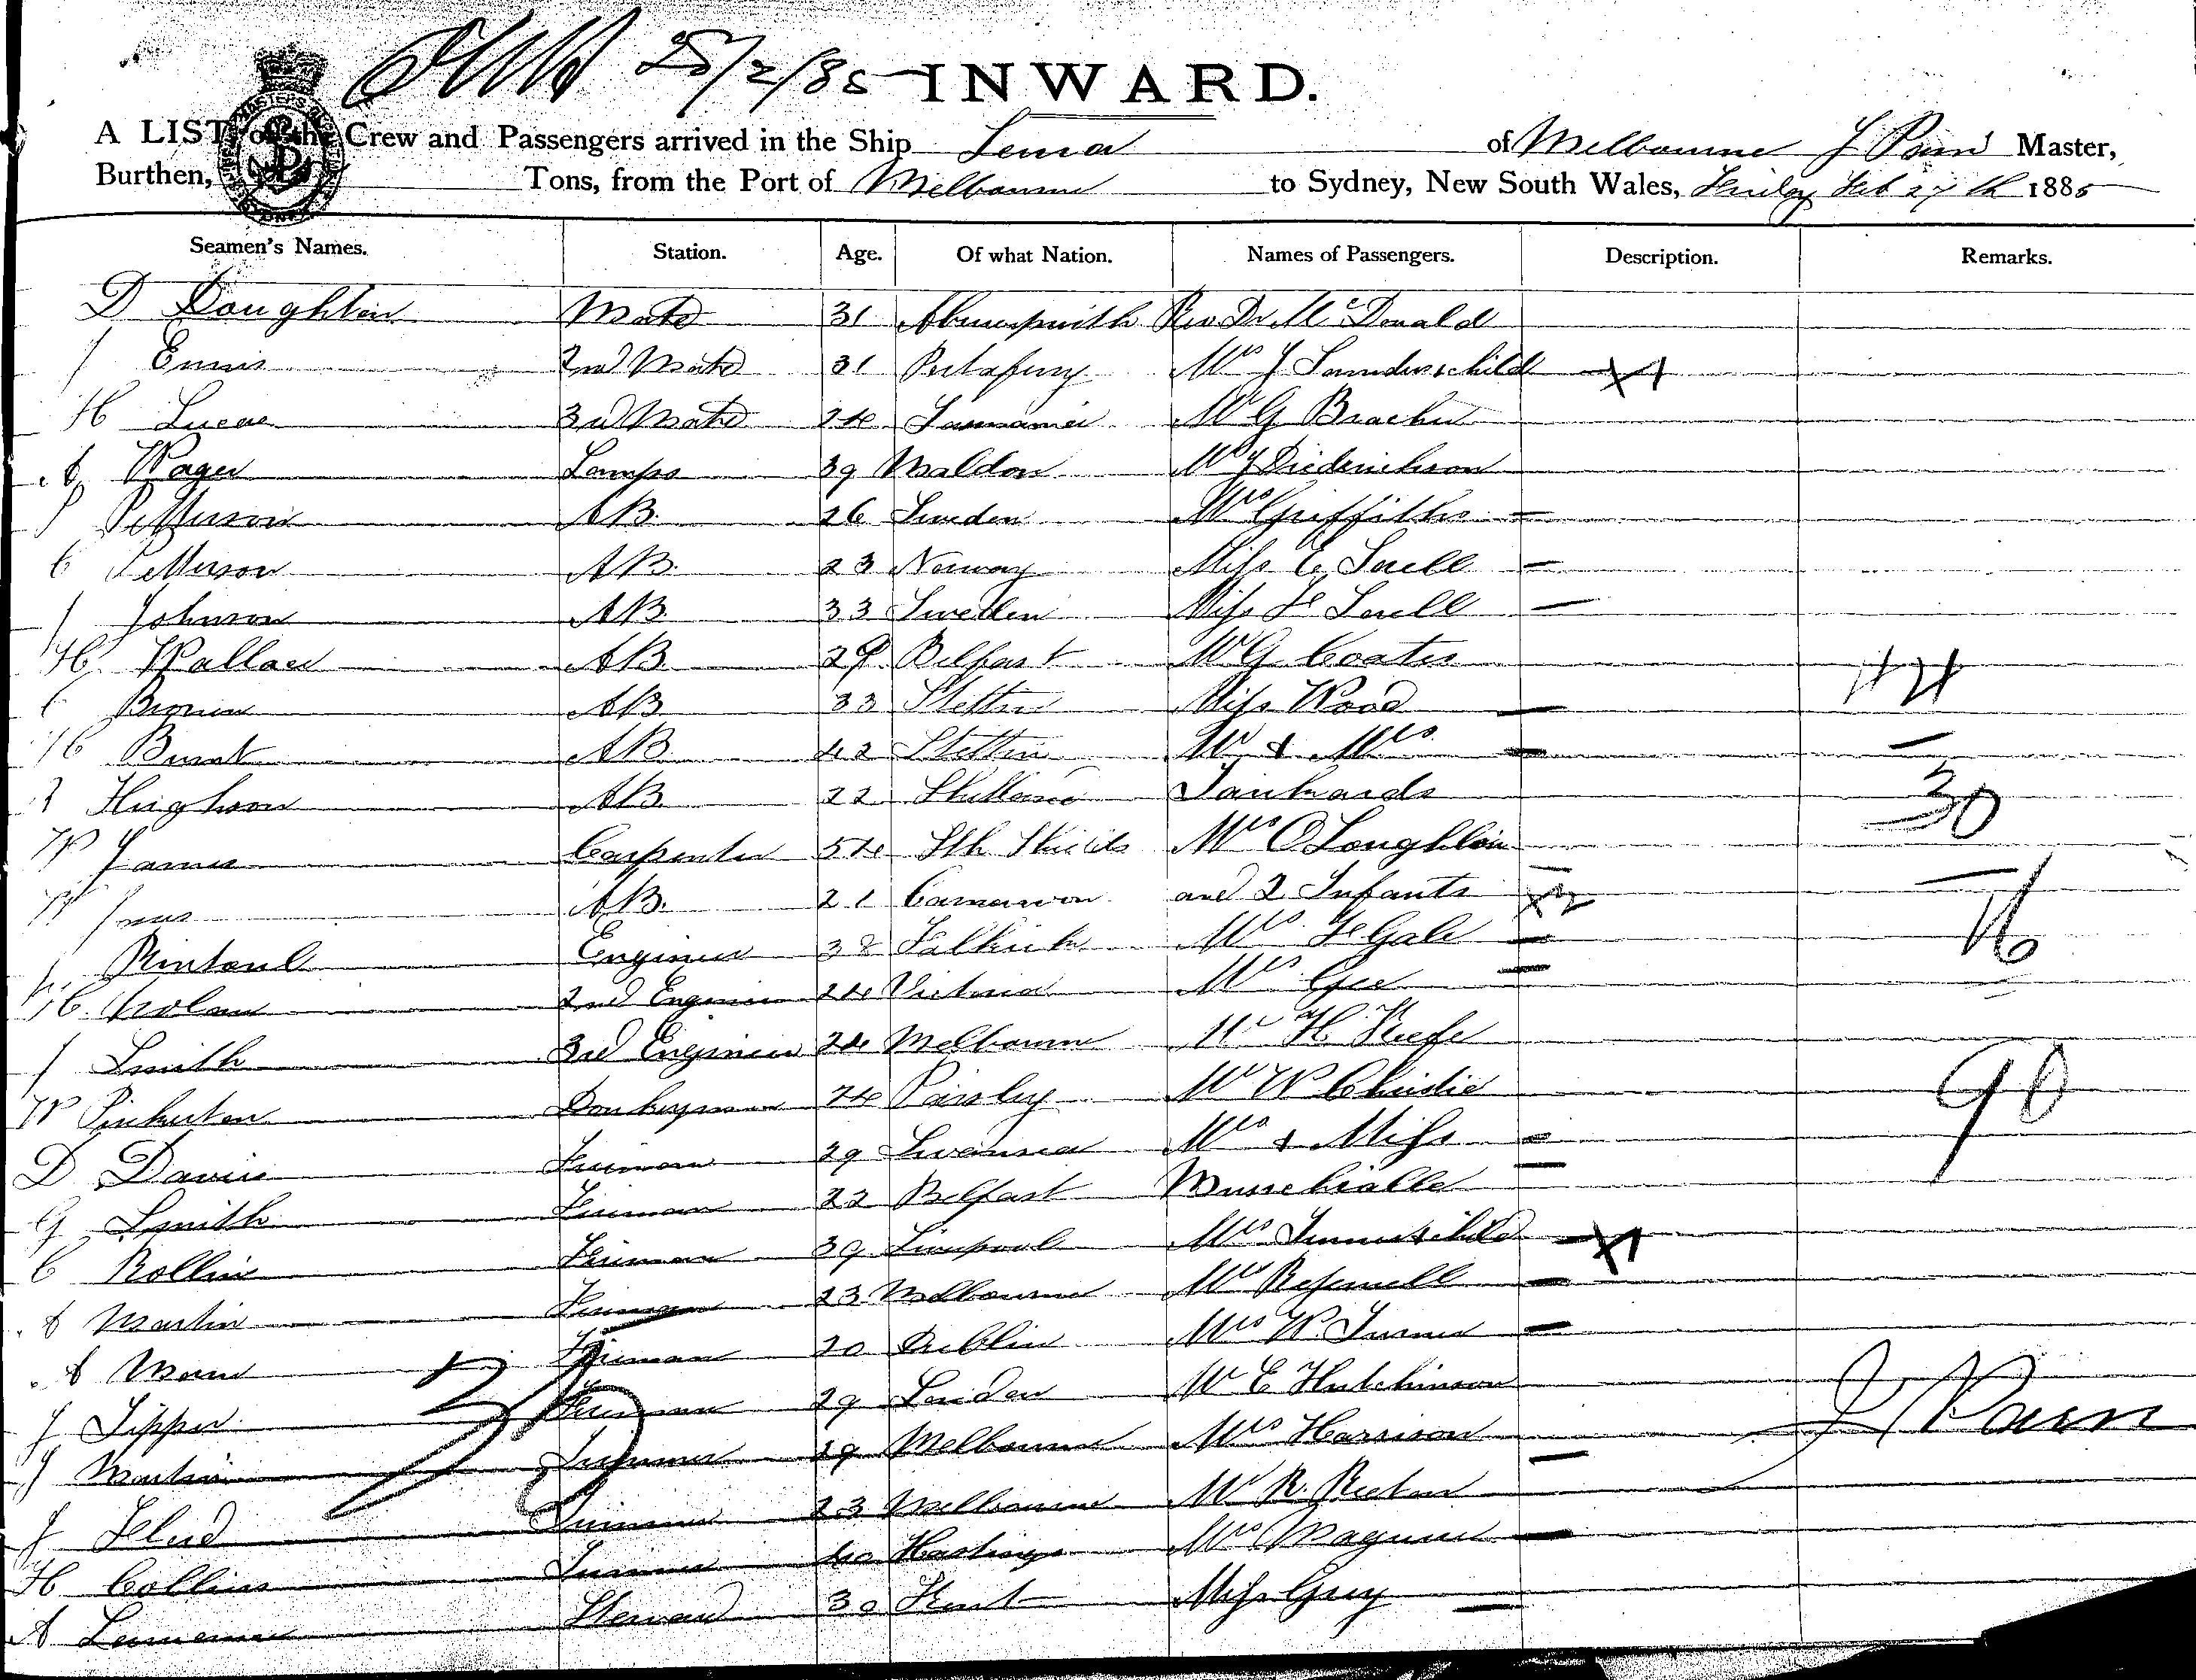 25/2/85 INWARD.
A LIST of the Crew and Passengers arrived in the Ship Lema of Melbourne J Pain Master,
Burthen, Tons, from the Port of Melbourne to Sydney, New South Wales, Friday Feb 27th 1885
Seamen's Names. Station. Age. Of what Nation. Names of Passengers. Description. Remarks.
D Doughlin Mate 31 Rev Dr McDonald
J Ennis 2nd Mate 31 Mrs J Saunders & child X1
H Lucas 3rd Mate 24 Tasmania Mr G Bracher
A Wager Lamps 39 Maldon Mr J Diederichson
J Petterson AB 26 Sweden Mrs Griffiths
C Petterson AB 23 Norway Miss C Snell
J Johnson AB 33 Sweden Miss F Snell
H Wallace AB 29 Belfast Mr G Coates
C Brown AB 33 Stettin Miss Wood
H Burat AB 42 Stettin Mr & Mrs
Hughson AB 22 Shetland Tankards 30
W James Carpenter 54 Sth Shields Mrs O'Loughlin
W AB. 21 Carnarvon and 2 Infants X2
Rintoul Engineer 38 Falkirk Mrs F Gale 16
H Nolan 2nd Engineer 24 Victoria Mrs Gee
J Smith 3rd Engineer 24 Melbourne Mr H Keefe
W Pinkerton Donkeyman 24 Paisley Mr W Christie 90
D Davis Fireman 29 Swansea Mrs & Miss
G Smith Fireman 22 Belfast
C Rollin Fireman 39 Liverpool Mrs Turner & child X1
A Martin Fireman 23 Melbourne Mrs
A Mann Fireman 20 Dublin Mrs W. Turner
J Tipper Fireman 29 London Mr E Hutchinson
J Martin Trimmer 19 Melbourne Mrs Harrison J Pain
J Trimmer 23 Melbourne Mr R.
H Collins Trimmer 40 Hastings Mrs
A Steward 30 Kent Miss Grey